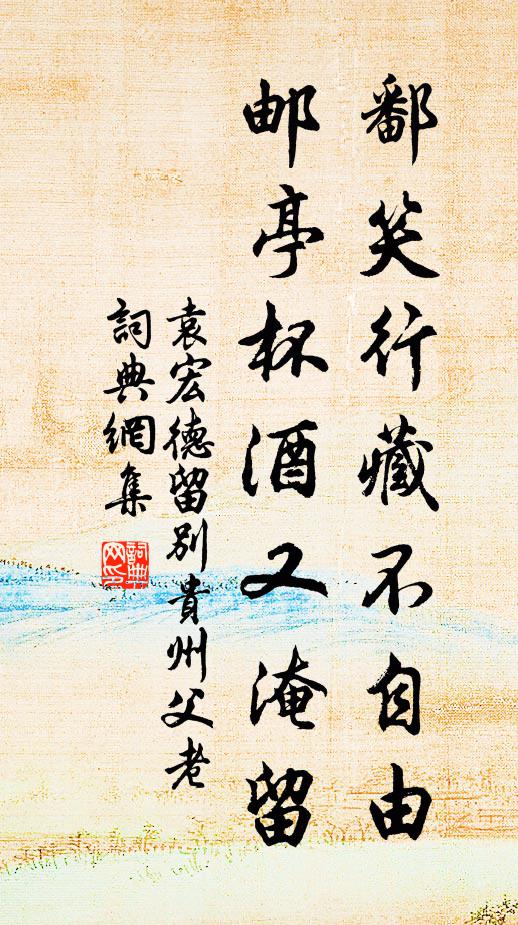 鄱笑行藏不自由
邮亭杯酒又淹留
袁宏德留别貴州父老
詞典網集
詞典
网印